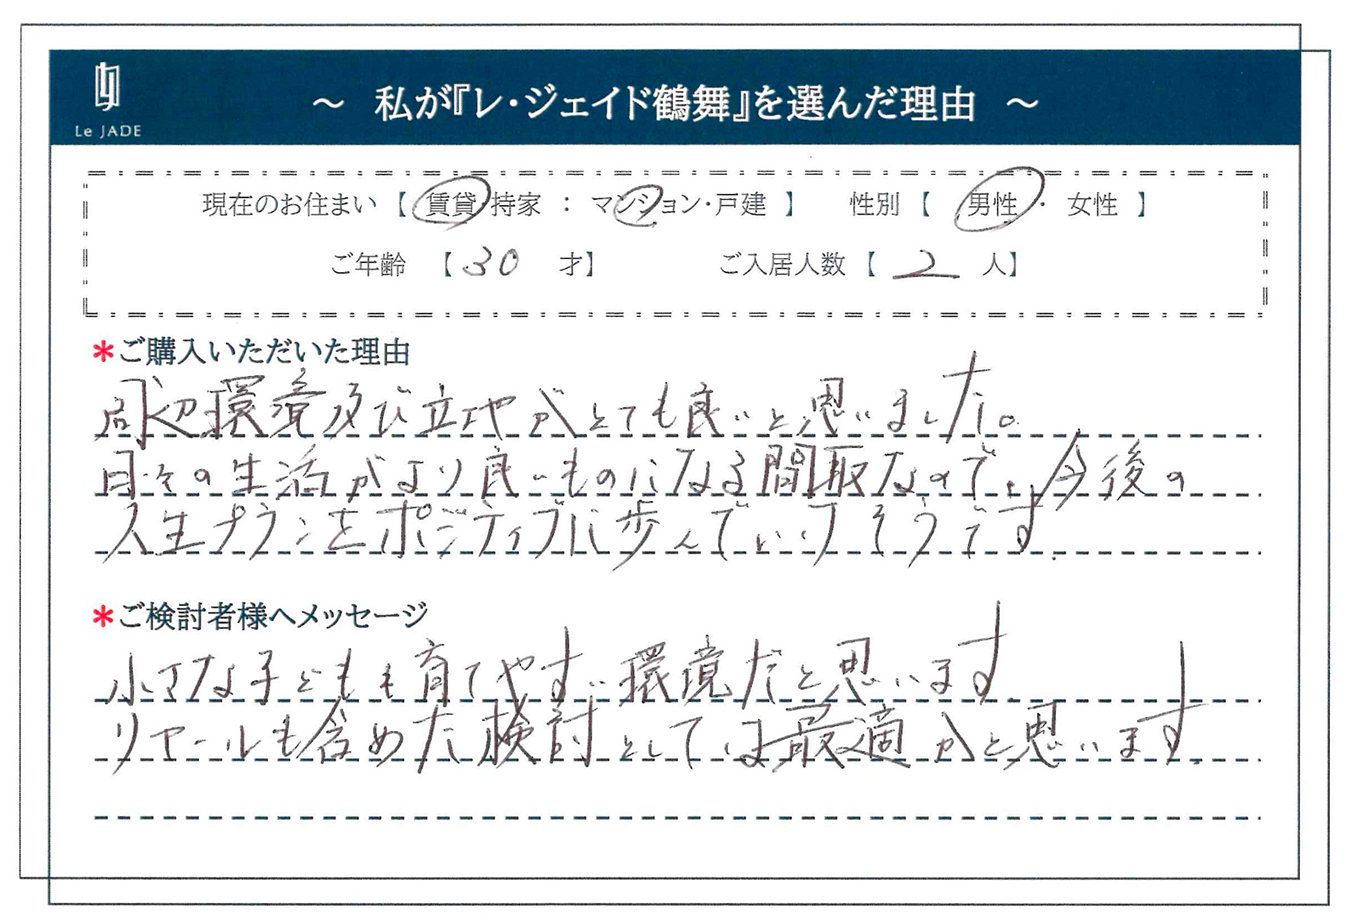 Le JADE
～ 私が『レ・ジェイド鶴舞』を選んだ理由 ～
現在のお住まい 【 賃貸・持家 ： マンション・戸建 】 性別 【 男性 ・ 女性 】
ご年齢 【 30 才】 ご入居人数 【 2 人】
＊ご購入いただいた理由
周辺環境及び立地がとても良いと思いました。
日々の生活がより良いものになる間取なので、今後の
人生プランをポジティブに歩んでいけそうです.
＊ご検討者様へメッセージ
小さな子どもも育てやすい環境だと思います.
リセールも含めた検討としては最適かと思います.